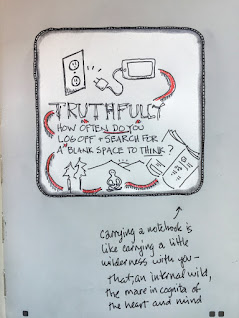 TRUTHFULLY
HOW OFTEN DO YOU
LOG OFF + SEARCH FOR
A BLANK SPACE TO THINK?
carrying a notebook is
like carrying a little
wilderness with you —
that, an internal wild,
the mare in cognita of
the heart and mind